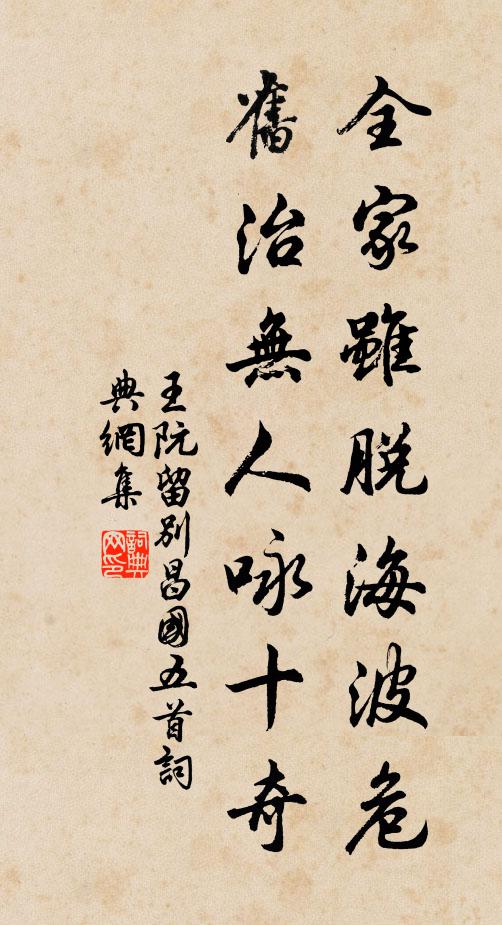 全家雖脱海波危
舊治無人咏十奇
王阮留别昌國五首詞
典網集
詞典
网印